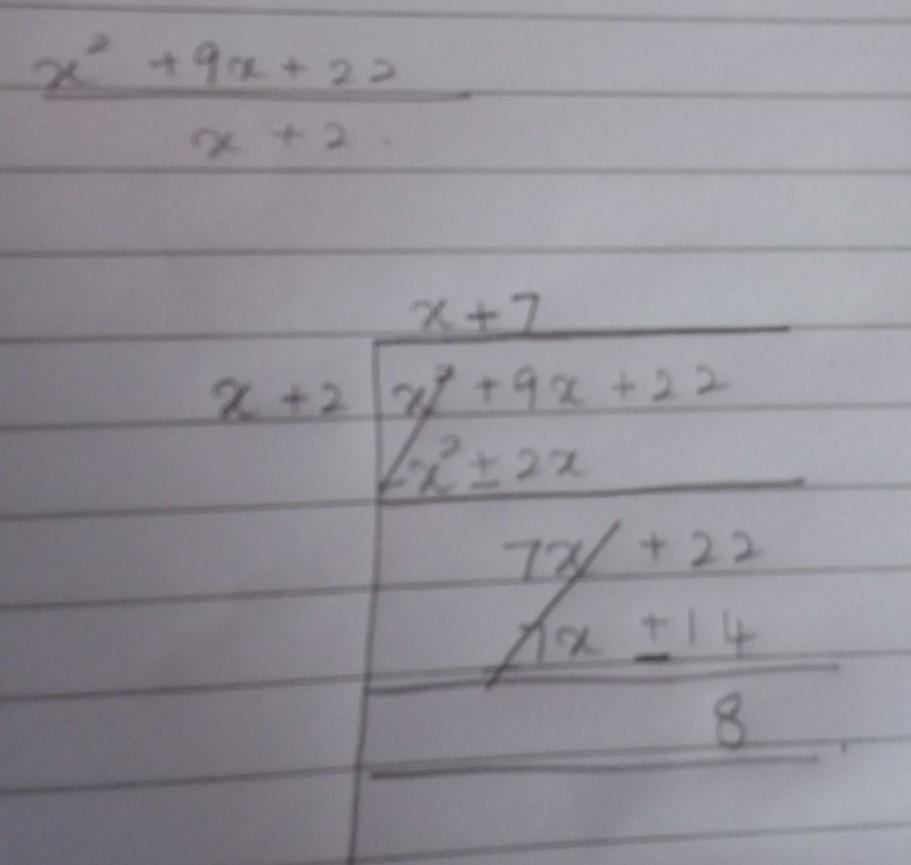 x² + 9x + 22
x + 2
x + 7
x + 2 x² + 9x + 22
-x² ± 2x
7x + 22
7x ± 14
8